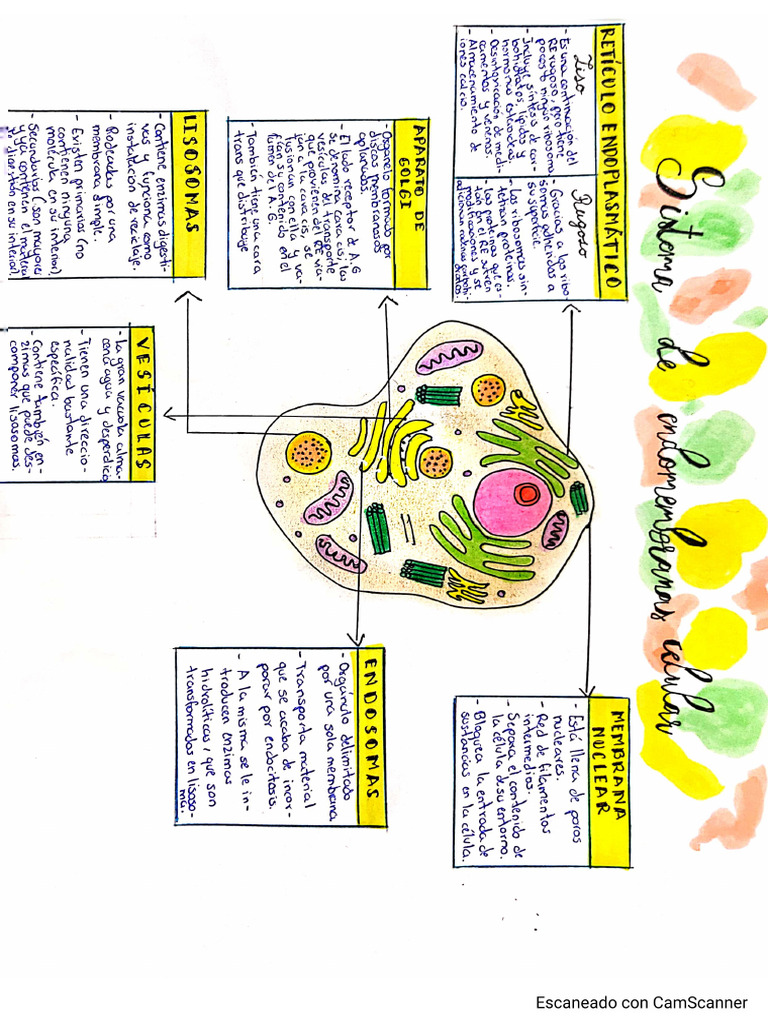 Sistema de endomembranas celular
RETÍCULO ENDOPLASMÁTICO
Liso
- Es una continuación del
RE rugoso, pero tiene
pocos o ningún ribosoma.
- Incluye síntesis de car-
bohidratos, lípidos y
hormonas esteroideas,
- Desintoxicación de medi-
camentos y venenos.
- Almacenamiento de
iones calcio.
Rugoso
- Gracias a los ribo-
somas adheridos a
su superficie.
- Los ribosomas sin-
tetizan proteínas.
- Las proteínas que es-
tán en el RE sufren
modificaciones y se
adicionan cadenas carbohi-
dratos.
MEMBRANA
NUCLEAR
- Está llena de poros
nucleares.
- Red de filamentos
intermedios.
- Separa el contenido de
la célula de su entorno.
- Bloquea la entrada de
sustancias en la célula.
APARATO DE
GOLGI
- Organelo formado por
discos membranosos
aplanados.
- El lado receptor de A.G
se denomina cara cis; las
vesículas del transporte
que provienen del RE via-
jan a la cara cis, se
fusionan con ella y va-
cían su contenido en el
lumen del A.G.
- También tiene una cara
trans que distribuye
ENDOSOMAS
- Orgánulo delimitado
por una sola membrana
- Transporta material
que se acaba de incor-
porar por endocitosis.
- A la misma se le in-
troducen enzimas
hidrolíticas, que son
transformados en lisoso-
ma.
LISOSOMAS
- Contiene enzimas digesti-
vas y funciona como
instalación de reciclaje.
- Rodeadas por una
membrana simple.
- Existen primarios (no
contienen ninguna
molécula en su interior)
- Secundarios (son mayores
y ya contienen el material
de digestión en su interior)
VESÍCULAS
- La gran vacuola alma-
cena agua y desperdicio
- Tienen una direccio-
nalidad bastante
específica.
- Contiene también en-
zimas que puede des-
componer lisosomas.
Escaneado con CamScanner